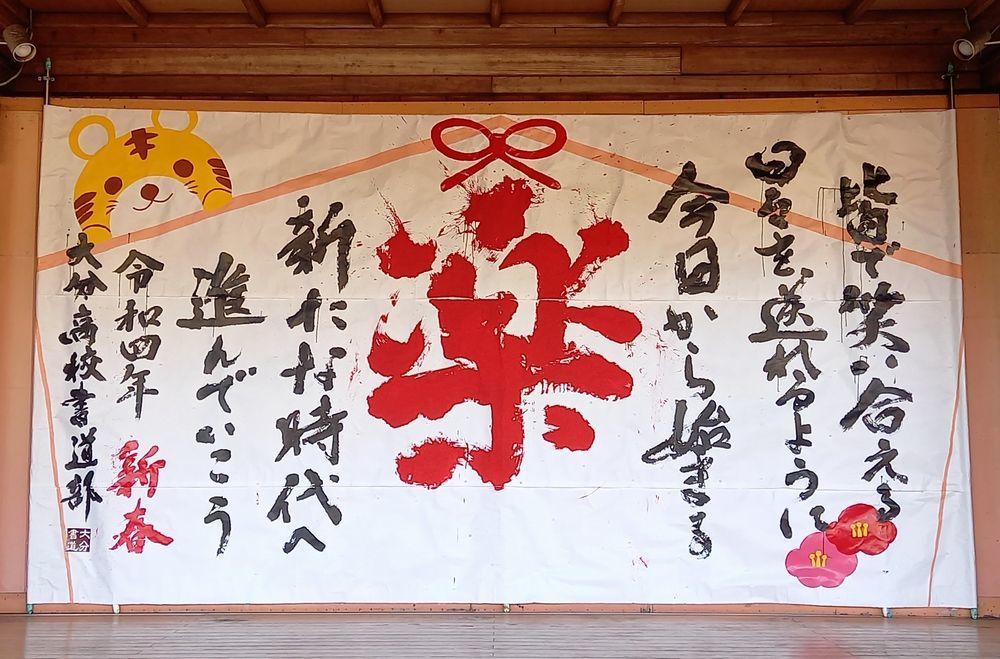 皆で笑い合える
日々を送れるように
今日から始まる
楽
新たな時代へ
進んでいこう
令和四年 新春
大分高校書道部
大分
書道